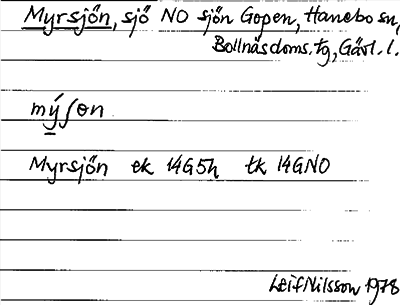 Myrsjön, sjö NO sjön Gopen, Hanebo sn,
Bollnäs doms. tg, Gävl. l.
mýʃөn
Myrsjön ek 14G5h tk 14GNO
Leif Nilsson 1978